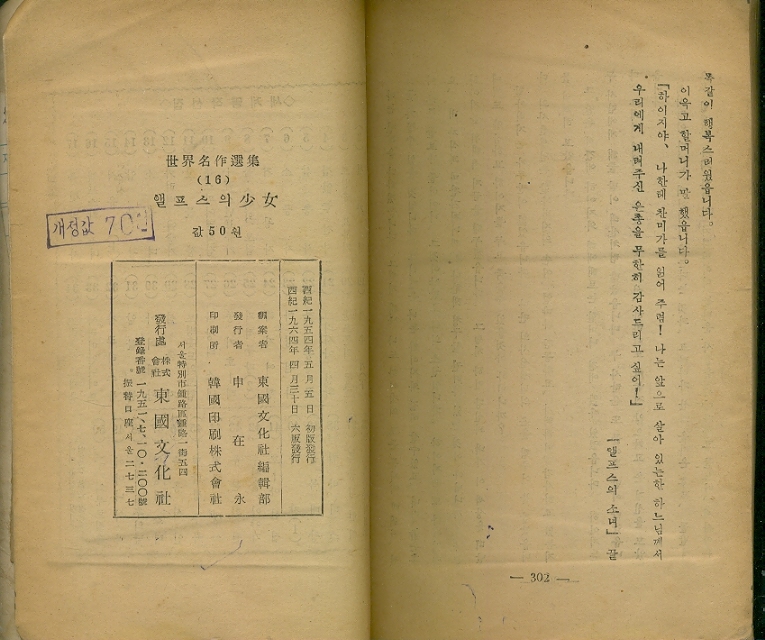 똑같이 행복스러웠읍니다.
이윽고 할머니가 말했읍니다.
「하이지야, 나한테 찬미가를 읽어 주렴! 나는 앞으로 살아 있는한 하느님께서
우리에게 내려주신 은총을 무한히 감사드리고 싶어!」
「앨프스의 소녀」 끝
— 302 —
世界名作選集
(16)
앨프스의 少女
값 50 원
개정값 70
西紀一九五四年 五月二五日 初版發行
西紀一九六四年 四月三十日 六版發行
飜案者 東國文化社編輯部
發行者 申在永
印刷所 韓國印刷株式會社
서울特別市鍾路區鍾路一街五四
發行處 株式會社 東國文化社
登錄番號 一九五一、七、一〇・二〇〇號
振替口座 서울 二七三七